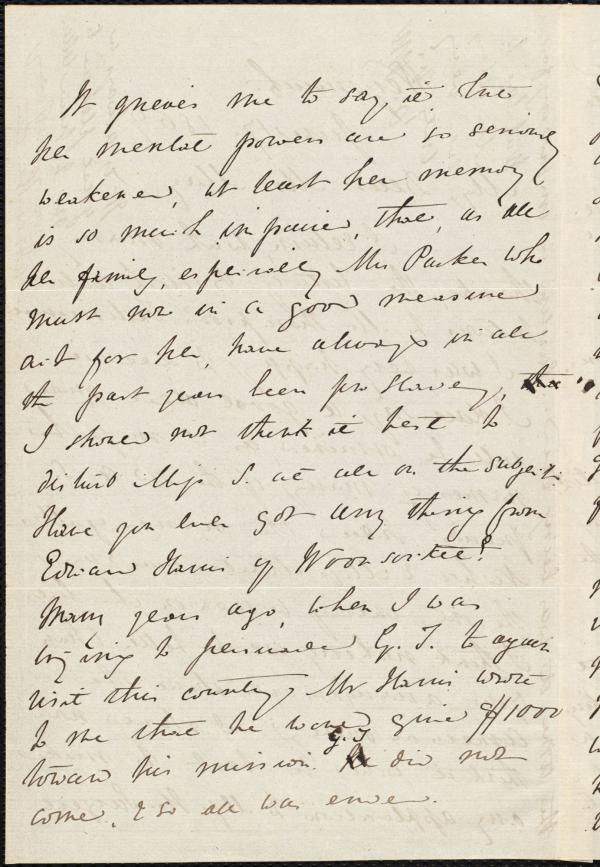 It grieves me to say it but
her mental powers are so seriously
weakened, at least her memory
is so much impaired, that, as all
her family, especially Mrs Parker who
must now in a good measure
act for her, have always in all
the past years been pro slavery, that
I should not think it best to
disturb Miss S. at all on the subject.
Have you ever got any thing from
Edward Harris of Woonsocket?
Many years ago, when I was
trying to persuade G. T. to again
visit this country, Mr Harris wrote
to me that he would give $1000
G. T.
toward his mission. he did not
come, & so all was ended.